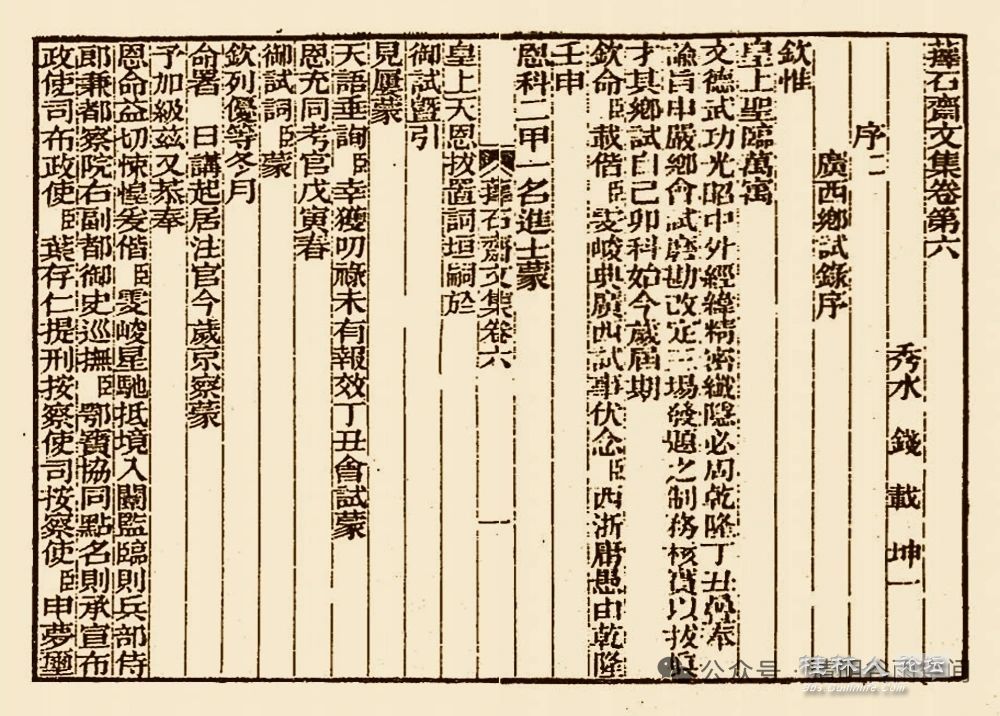 蘀石齋文集卷第六
秀水 錢 載 坤一
序二
廣西鄉試錄序
欽惟
皇上聖臨萬寓
文德武功光昭中外經緯精密纖隱必周乾隆丁丑疊奉
諭旨申嚴鄉會試磨勘改定三場發題之制務核實以拔真
才其鄉試自己卯科始今歲屆期
欽命臣載偕臣雯峻典廣西試事伏念臣西浙庸愚由乾隆
壬申
恩科二甲一名進士蒙
蘀石齋文集卷六 一
皇上天恩拔置詞垣嗣於
御試暨引
見屢蒙
天語垂詢臣幸獲叨祿未有報效丁丑會試蒙
恩充同考官戊寅春
御試詞臣蒙
欽列優等冬月
命署 日講起居注官今歲京察蒙
予加級茲又恭奉
恩命益切悚惶爰偕臣雯峻星馳抵境入闈監臨則兵部侍
郎兼都察院右副都御史巡撫臣鄂寶協同點名則承宣布
政使司布政使臣葉存仁提刑按察使司按察使臣申夢璽
公众号
桂林人论坛
bbs.guilinlife.com